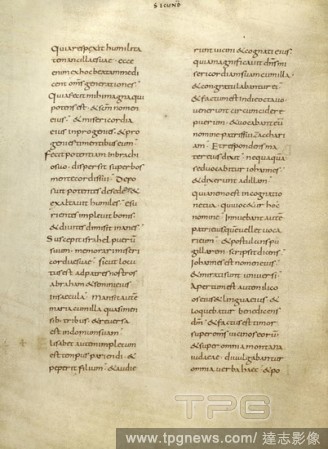 SECUND
Quia respexit humilita
tem ancillae suae · ecce
enim ex hoc beatam me di
cent om̄s generationes ·
Quia fecit mihi magna qui
potens est · & sc̄m nomen
eius · & misericordia
eius in progenies & pro
genies timentibus eum ·
Fecit potentiam in brachi
o suo · dispersit superbos
mente cordis sui · Depo
suit potentes de sede · &
exaltavit humiles · esu
rientes implevit bonis
& divites dimisit inanes ·
Suscepit israhel puerū
suum · memorari miseri
cordiae suae · sicut locu
tus est ad patres nostros
abraham & semini eius
in saecula · Mansit autē
maria cum illa quasi men
sibus tribus · & reversa
est in domum suam ·
elisabet autem impletum
est tempus pariendi · &
peperit filium · & audie
runt vicini & cognati eius ·
quia magnificavit dn̄s mi
sericordiam suam cum illa ·
& congratulabantur ei ·
& factum est in die octavo
venerunt circumcidere pu
erum · & vocabant eū
nomine patris sui zachari
am · Et respondens ma
ter eius dixit · nequaqua
sed vocabitur iohannes ·
& dixerunt ad illam
quia nemo est in cognatio
ne tua · qui vocetur hoc
nomine · Innuebant autē
patri eius quem vellet voca
ri eum · & postulans pu
gillarem · scripsit dicens ·
Iohannes est nomen eius ·
& mirati sunt universi ·
Apertum est autem ilico
os eius & lingua eius · &
loquebatur benedicens
dm̄ · & factus est timor
super om̄s vicinos eorū ·
& super omnia montana
iudaeae · divulgabantur
omnia verba haec · & po
TPG
www.tpgnews.com/達志影像